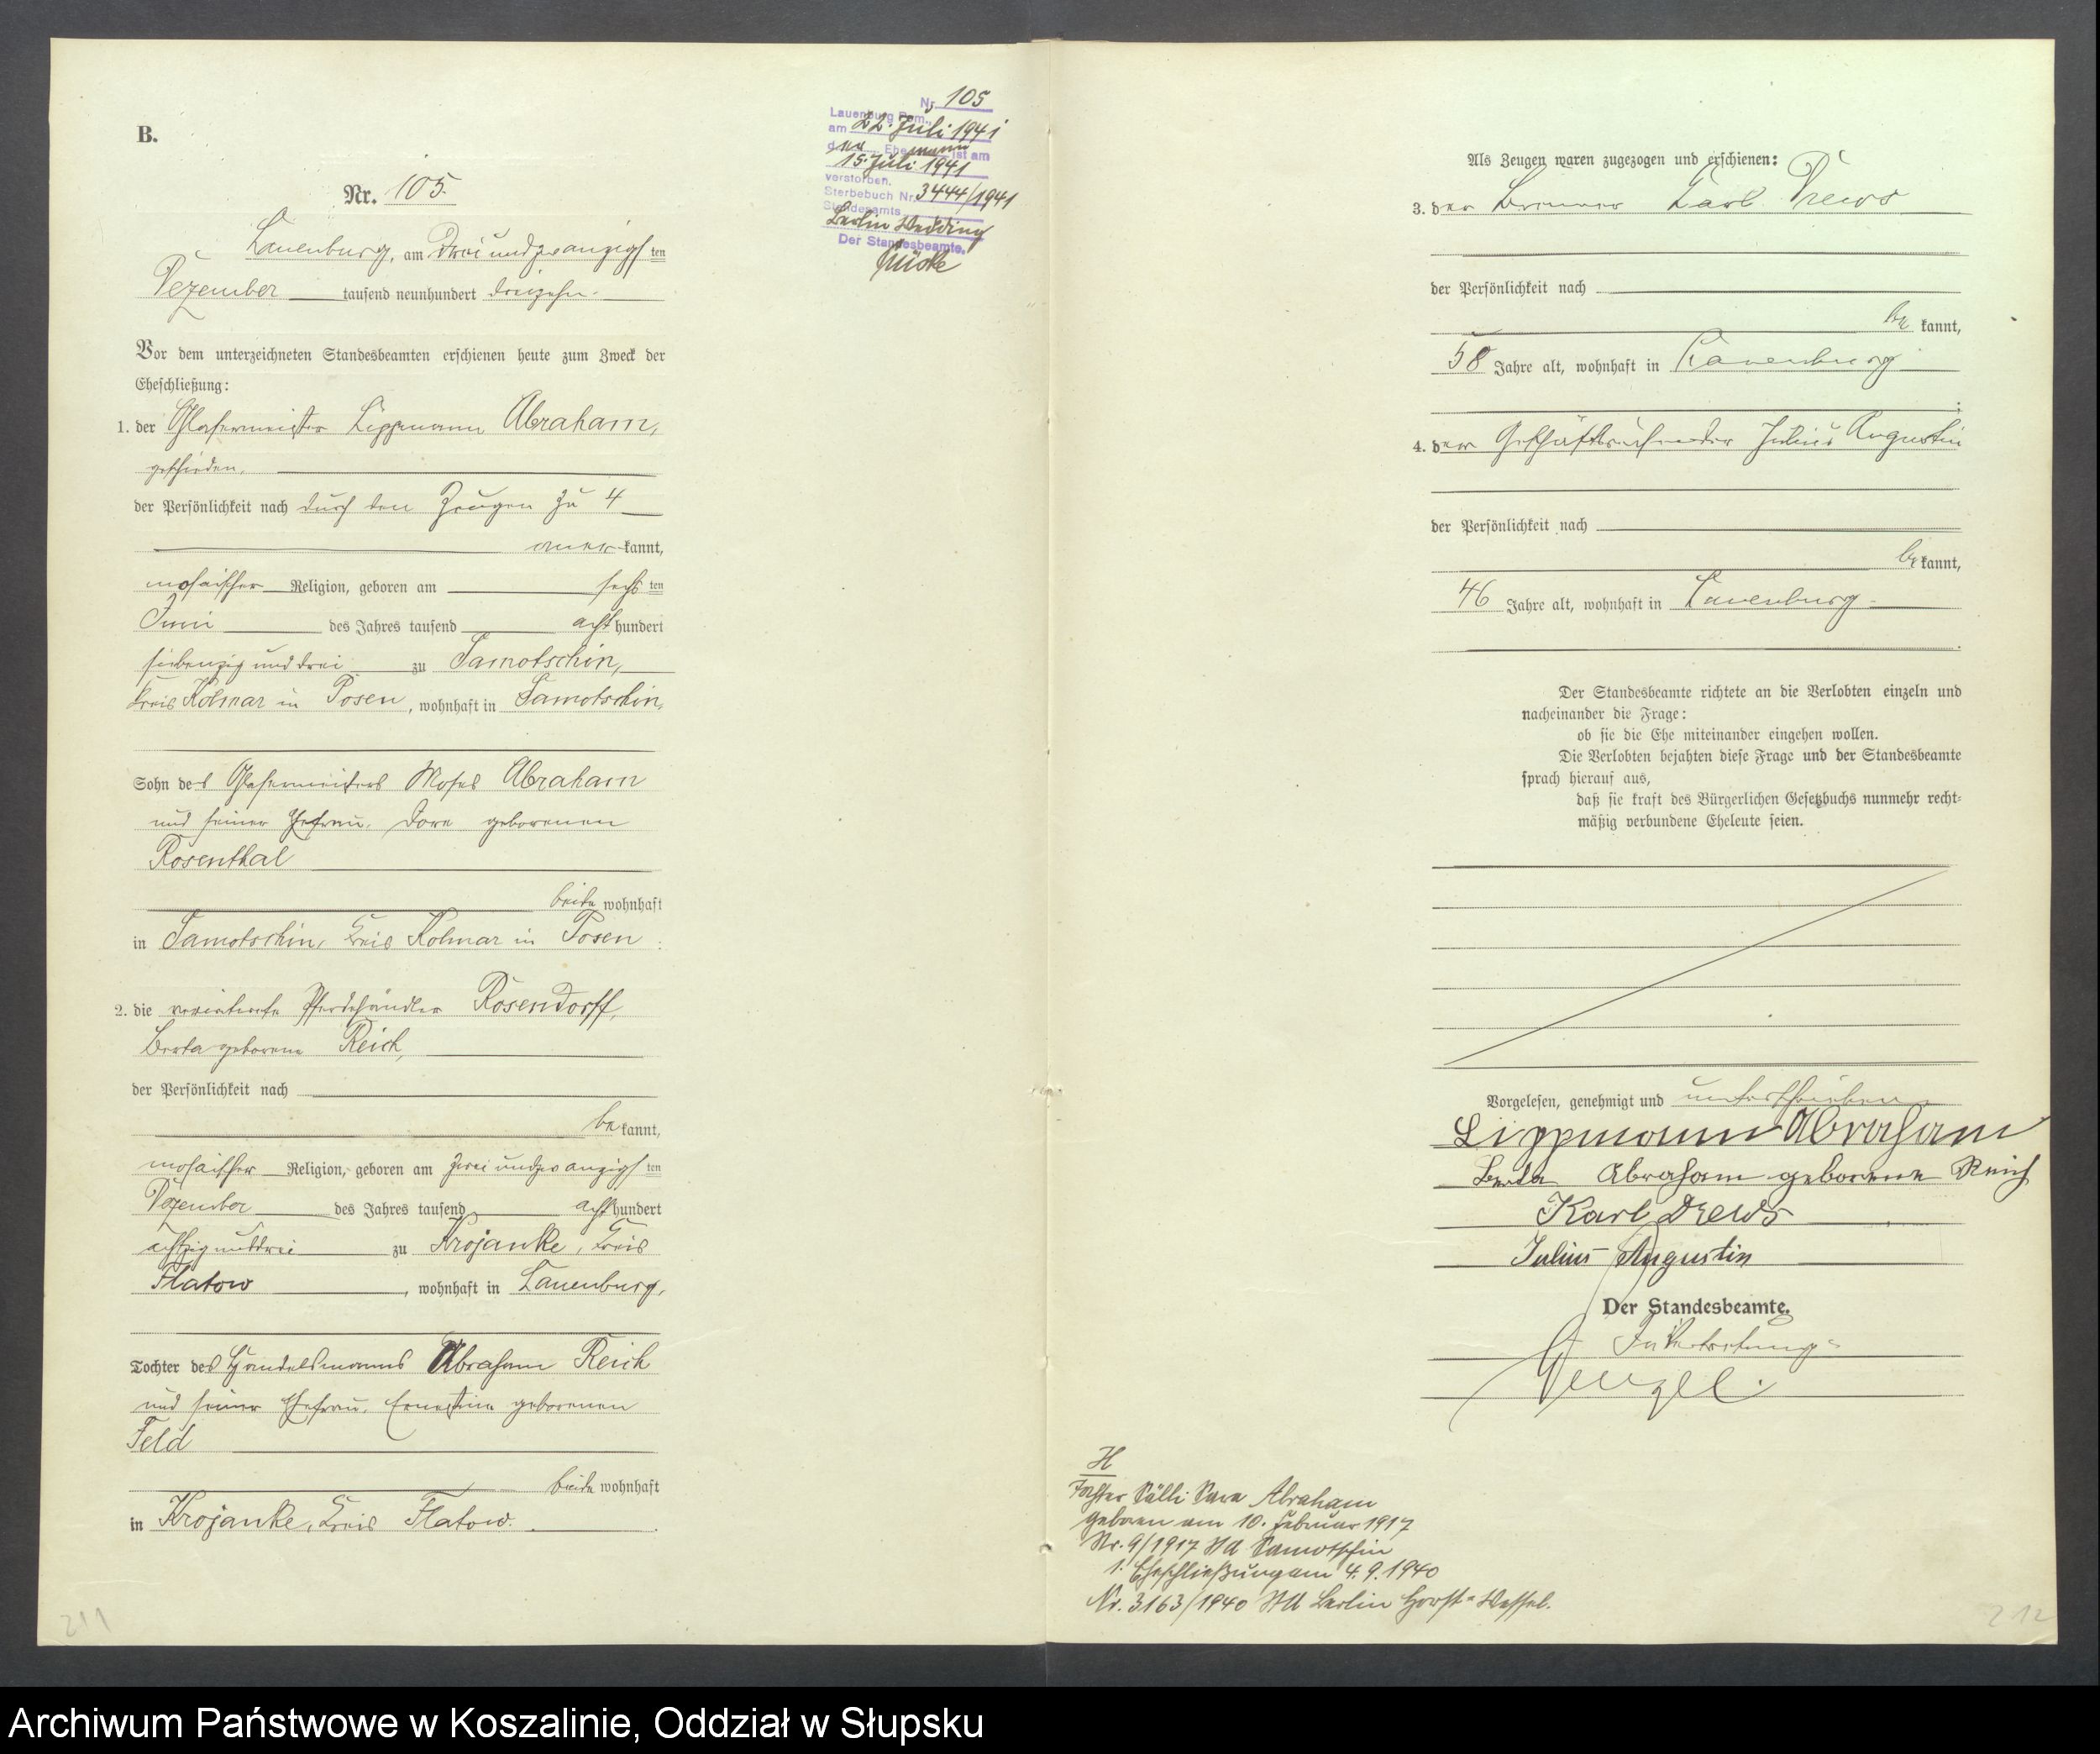 B.
Nr. 105.
Lauenburg, am Dreiundzwanzigsten
Dezember tausend neunhundert dreizehn.
Vor dem unterzeichneten Standesbeamten erschienen heute zum Zweck der
Eheschließung:
1. der Glasermeister Lippmann Abraham,
geschieden,
der Persönlichkeit nach durch den Zeugen zu 4
anerkannt,
mosaischer Religion, geboren am sechsten
Juni des Jahres tausend achthundert
siebenzig und drei zu Samotschin,
Kreis Kolmar in Posen, wohnhaft in Samotschin,
Sohn des Glasermeisters Moses Abraham
und seiner Ehefrau, Dore geborenen
Rosenthal
beide wohnhaft
in Samotschin, Kreis Kolmar in Posen.
2. die verwitwete Pferdehändler Rosendorff,
Berta geborene Reich,
der Persönlichkeit nach
bekannt,
mosaischer Religion, geboren am zweiundzwanzigsten
Dezember des Jahres tausend achthundert
achtzig und drei zu Krojanke, Kreis
Flatow, wohnhaft in Lauenburg,
Tochter des Handelsmanns Abraham Reich
und seiner Ehefrau, Ernestine geborenen
Feld
beide wohnhaft
in Krojanke, Kreis Flatow.
211
Nr. 105
Lauenburg Pom.,
am 22. Juli 1941
der Ehemann ist am
15. Juli 1941
verstorben.
Sterbebuch Nr. 3444/1941
Standesamts
Berlin Wedding
Der Standesbeamte.
Als Zeugen waren zugezogen und erschienen:
3. der Karl Drews
der Persönlichkeit nach
bekannt,
58 Jahre alt, wohnhaft in Lauenburg
;
4. der Geschäftsreisender Julius Augustin
der Persönlichkeit nach
bekannt,
46 Jahre alt, wohnhaft in Lauenburg
.
Der Standesbeamte richtete an die Verlobten einzeln und
nacheinander die Frage:
ob sie die Ehe miteinander eingehen wollen.
Die Verlobten bejahten diese Frage und der Standesbeamte
sprach hierauf aus,
daß sie kraft des Bürgerlichen Gesetzbuchs nunmehr recht-
mäßig verbundene Eheleute seien.
Vorgelesen, genehmigt und unterschrieben
Lippmann Abraham
Berta Abraham geborene Reich
Karl Drews
Julius Augustin
Der Standesbeamte.
In Vertretung
Wenzel.
H
Tochter Sälli Sara Abraham
geboren am 10. Februar 1917
Nr. 9/1917 StA Samotschin
1. Eheschließung am 4.9.1940
Nr. 3163/1940 StA Berlin Horst-Wessel.
212
Archiwum Państwowe w Koszalinie, Oddział w Słupsku